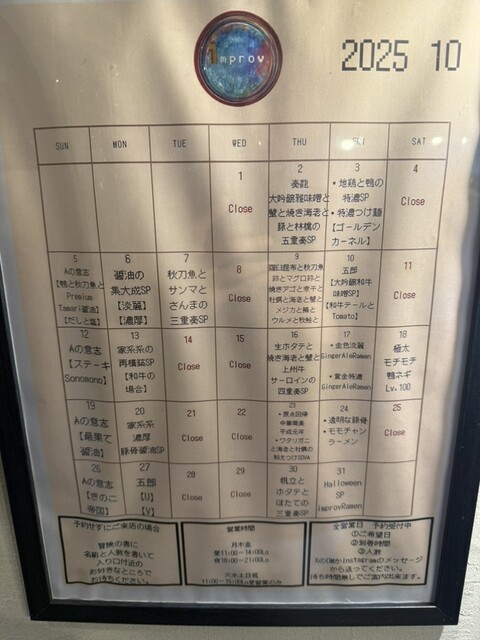 improv
2025 10
SUN MON TUE WED THU FRI SAT
1
Close
2
奏龍
大吟醸雅味噌と
蟹と焼き海老と
豚と林檎の
五重奏SP
3
・地鶏と鴨の
特濃SP
・特濃つけ麺
【ゴールデン
カーネル】
4
Close
5
Aの意志
【鴨と秋刀魚と
Premium
Tamari醤油】
【だしと塩】
6
醤油の
集大成SP
【淡麗】
【濃厚】
7
秋刀魚と
サンマと
さんまの
三重奏SP
8
Close
9
羅臼昆布と秋刀魚
節とマグロ節と
焼きアゴと煮干と
牡蠣と海老と蟹と
メジカと鯵と
ウルメと秋鮭と
10
五郎
【大吟醸和牛
味噌SP】
【和牛テールと
Tomato】
11
Close
12
Aの意志
【ステーキ
Sonomono】
13
家系系の
再構築SP
【和牛の
場合】
14
Close
15
Close
16
生ホタテと
焼き海老と蟹と
上州牛
サーロインの
四重奏SP
17
・金色淡麗
GingerAleRamen
・黄金特濃
GingerAleRamen
18
極太
モチモチ
鴨ネギ
Lv.100
19
Aの意志
【最果て
醤油】
20
家系系
濃厚
豚骨醤油SP
21
Close
22
Close
23
・原点回帰
中華蕎麦
平成元年
・ワタリガニ
と海老と牡蠣の
和えつけSOVA
24
・透明な豚骨
・モモチャン
ラーメン
25
Close
26
Aの意志
【きのこ
帝国】
27
五郎
【U】
【V】
28
Close
29
Close
30
帆立と
ホタテと
ほたての
三重奏SP
31
Halloween
SP
improvRamen
予約せずにご来店の場合
冒険の書に
名前と人数を書いて
入り口付近の
お好きなところで
お待ちください。
営業時間
月木金
昼11:00~14:00Lo
夜18:00~21:00Lo
火水土日祝
11:00~15:00Lo昼営業のみ
全営業日 予約受付中
①ご希望日
②到着時間
③人数
XのDMかInstagramのメッセージ
から送ってください。
待ち時間無しでご案内出来ます。